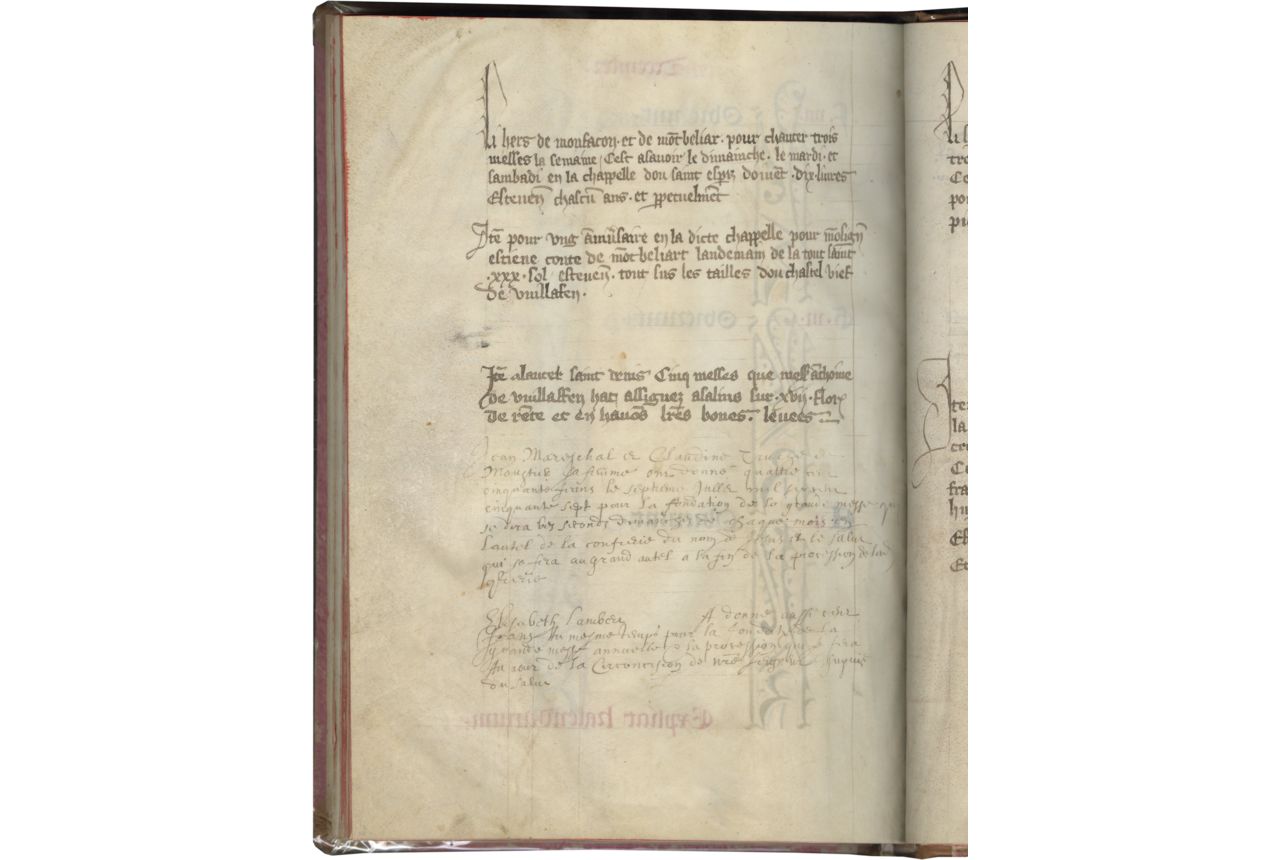 Li hers de monfacon et de mōtbeliar . pour chanter trois
messes la semaine / Cest asavoir le dimainche . le mardi . et
sambadi en la chappelle dou saint esp̄it doivēt . dix . livres
Estevēn chascū ans . et ppetuelmēt
Itē pour ung āniv̄saire en la dicte chappelle pour mōsign̄
estiene conte de mōtbeliart landemain de la tout saint
. xxx . sol estevēn . tout sus les tailles dou chastel vies
de vuillafen .
Itē alautel saint denis Cinq messes que mess̄ āthoine
de vuillaffen hat assignez asalins sur . xvij . flor
de rēte et en havōs lrēs bones . levees
Jean Mareschal et Claudine
sa femme ont donne quattre cent
cinquante frans le septieme Juillet mil six cent
cinquante sept pour la fondation de la grande messe qui
se dira les seconds dimanches de chaque mois a
lautel de la confrerie du nom de Jesus et le salut
qui se fera au grand autel a la fin de la procession de lad
cfrerie
Elisabeth Lambert A donne aussi cent
frans au mesme temps pour la fondation de la
grande messe annuelle & la procession qui se fera
Au jour de la Circoncision de nrē seigneur
du salut